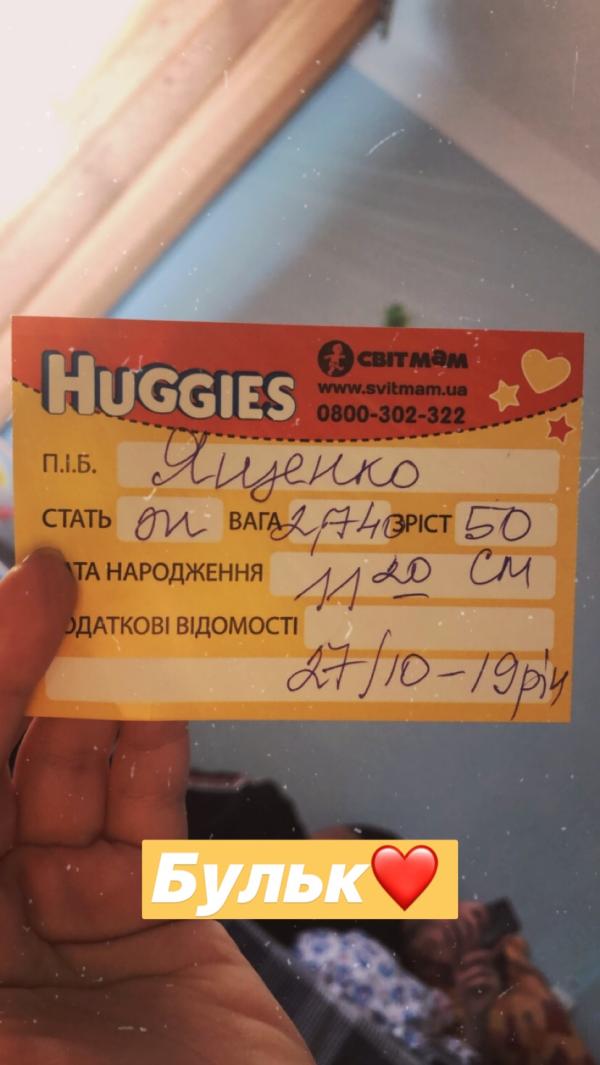 HUGGIES
СВІТ МАМ
www.svitmam.ua
0800-302-322
П.І.Б. Ященко
СТАТЬ ВАГА 2,740 ЗРІСТ 50
АТА НАРОДЖЕННЯ 11 20 СМ
ОДАТКОВІ ВІДОМОСТІ
27/10-19 рік
Бульк❤️